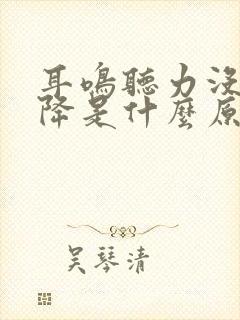 耳鳴聽力沒
降是什麼原
吳琴清